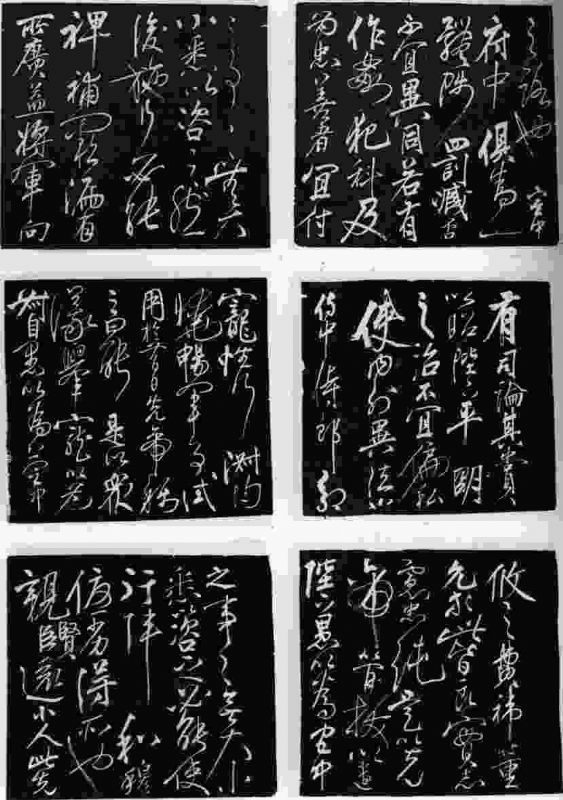 之路也宫中
府中俱為一
體陟罰臧否
不宜異同若有
作姦犯科及
為忠善者宜付
有司論其賞
以昭陛下平明
之治不宜偏私
使内外異法也
侍中侍郎郭
攸之費禕董
允等此皆良實志
慮忠純是以先
帝簡拔以遺
陛下愚以為宫中
之事事無大
小悉以咨之然
後施行必能
裨補闕漏有
所廣益將軍向
寵性行淑均
曉暢軍事試
用於昔日先帝稱
之曰能是以衆
議舉寵以為
督愚以為營中
之事事無大小
悉以咨之必能使
行陣和穆
優劣得所也
親賢臣遠小人此先